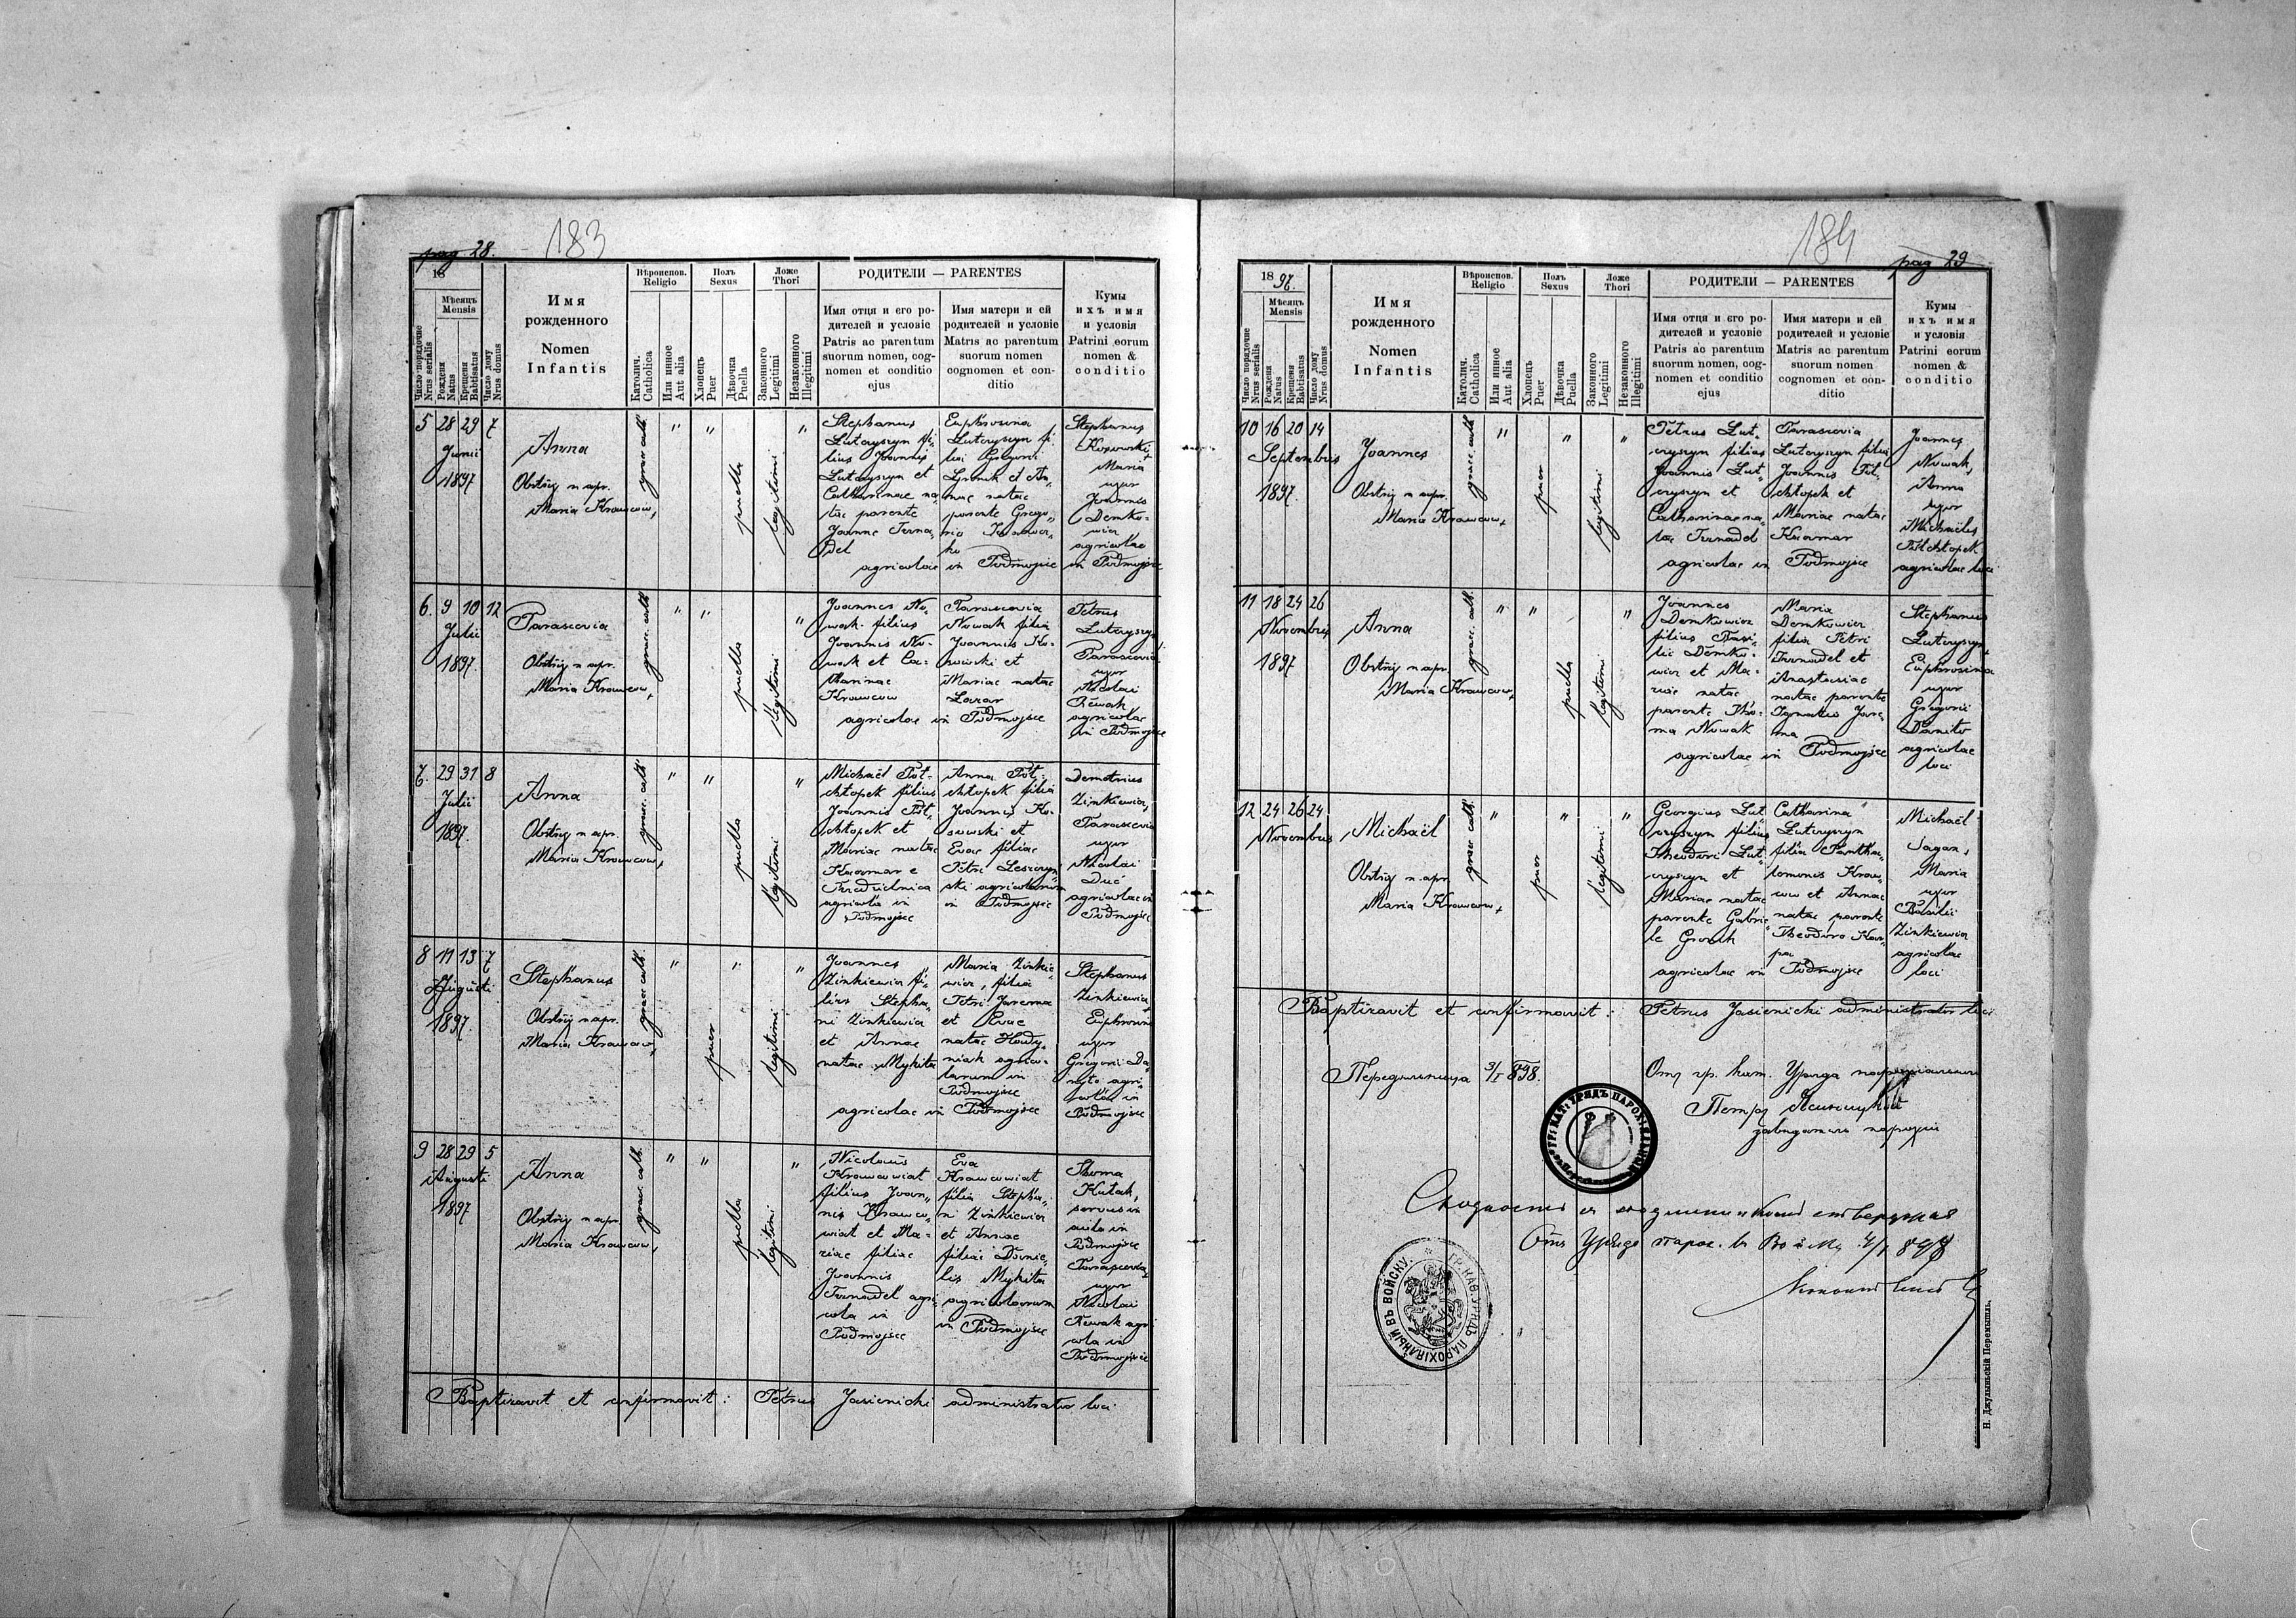 pag 28.
183
18
Число порядочне
Nrus serialis
Мѣсяцъ
Mensis
Рожденя
Natus
Крещеня
Babtisatus
Число дому
Nrus domus
Имя
рожденного
Nomen
Infantis
Вѣроиспов.
Religio
Католич.
Catholica
Или инное
Aut alia
Полъ
Sexus
Хлопецъ
Puer
Дѣвочка
Puella
Ложе
Thori
Законного
Legitimi
Незаконного
Illegitimi
РОДИТЕЛИ — PARENTES
Имя отця и его ро-
дителей и условіе
Patris ac parentum
suorum nomen, cog-
nomen et conditio
ejus
Имя матери и ей
родителей и условіе
Matris ac parentum
suorum nomen
cognomen et con-
ditio
Кумы
ихъ имя
и условія
Patrini eorum
nomen &
conditio
5 28 29 7
Junii
1897
Anna
Obstrix n apr.
Maria Krawcow,
graec. cath.
" "
puella
legitimi
"
Stephanus
Lutcyszyn fi-
lius Joannis
Lutcyszyn et
Catharinae na-
tae parente
Joanne Trnа-
del
Euphrosina
Lutcyszyn fi-
lia Gregorii
natae
parente Grego-
rio
agricolae in Podmojsce
Stephanus
Kossowski,
Maria
uxor
Joannis
Demko-
wicz
agricolae
in Podmojsce
6. 9 10 12
Julii
1897.
Parascevia
Obstrix n apr.
Maria Krawcow,
graec. cath.
" "
puella
legitimi
"
Joannes No-
wak filius
Joannis No-
wak et Ca-
tharinae
Krawcow
Parascevia
Nowak filia
Joannis Ko-
sowski et
Mariae natae
Lazar
agricolae in Podmojsce
Petrus
Lutcyszyn
Parascevia
uxor
Nicolai
Nowak
agricolae
in Podmojsce
7. 29 31 8
Julii
1897.
Anna
Obstrix n apr.
Maria Krawcow,
graec. cath.
" "
puella
legitimi
"
Michaël Pół-
chłopek filius
Joannis Pół-
chłopek et
Mariae natae
Kaczmar e
Fredrichnica
agricola in
Podmojsce
Anna Pół-
chłopek filia
Joannis Ko-
sowski et
Evae filiae
Petri Leszczyn-
ski agricolarum
in Podmojsce
Demetrius
Zinkiewicz,
Parascevia
uxor
Nicolai
Duć
agricolae in
Podmojsce
8 11 13 7
Augusti
1897.
Stephanus
Obstrix n apr.
Maria Krawcow,
graec. cath.
"
puer
"
legitimi
"
Joannes
Zinkiewicz fi-
lius Stepha-
ni Zinkiewicz
et Annae
natae Mykita
Maria Zinkie-
wicz, filia
Petri Jarema
et Evae
natae Hudy-
niak agrico-
larum in
Podmojsce
agricolae in Podmojsce
Stephanus
Zinkiewicz,
Euphrosina
uxor
Gregorii Da-
niło agri-
colae in
Podmojsce
9 28 29 5
Augusti
1897
Anna
Obstrix n apr.
Maria Krawcow,
graec. cath.
" "
puella
legitimi
"
Nicolaus
Krawcowiat
filius Joan-
nis Krawco-
wiat et Ma-
riae filiae
Joannis
Trnadel agri-
cola in
Podmojsce
Eva
Krawcowiat
filia Stepha-
ni Zinkiewicz
et Annae
filiae Danie-
lis Mykita
agricolarum
in Podmojsce
Thoma
Kułak,
servus in
aula in
Podmojsce
Parascevia
uxor
Nicolai
Nowak agri
cola in
Podmojsce
Baptizavit et confirmavit: Petrus Jasienicki administrator loci
184
pag 29
1897.
Число порядочне
Nrus serialis
Мѣсяцъ
Mensis
Рожденя
Natus
Крещеня
Babtisatus
Число дому
Nrus domus
Имя
рожденного
Nomen
Infantis
Вѣроиспов.
Religio
Католич.
Catholica
Или инное
Aut alia
Полъ
Sexus
Хлопецъ
Puer
Дѣвочка
Puella
Ложе
Thori
Законного
Legitimi
Незаконного
Illegitimi
РОДИТЕЛИ — PARENTES
Имя отця и его ро-
дителей и условіе
Patris ac parentum
suorum nomen, cog-
nomen et conditio
ejus
Имя матери и ей
родителей и условіе
Matris ac parentum
suorum nomen
cognomen et con-
ditio
Кумы
ихъ имя
и условія
Patrini eorum
nomen &
conditio
10 16 20 14
Septembris
1897.
Joannes
Obstrix n apr.
Maria Krawcow,
graec. cath.
"
puer
"
legitimi
"
Petrus Lut-
cyszyn filius
Joannis Lut-
cyszyn et
Catharinae na-
tae Trnadel
Parascevia
Lutcyszyn filia
Joannis Pół-
chłopek et
Mariae natae
Kaczmar
agricolae in Podmojsce
Joannes
Nowak,
Anna
uxor
Michaelis
Półchłopek
agricolae loci
11 18 24 26
Novembris
1897
Anna
Obstrix n apr.
Maria Krawcow,
graec. cath.
" "
puella
legitimi
"
Joannes
Demkowicz
filius Basi-
lii Demko-
wicz et Ma-
riae natae
parente Tho-
ma Nowak
Maria
Demkowicz
filia Petri
Trnadel et
Anastasiae
natae parente
Ignatio Jare-
ma
agricolae in Podmojsce
Stephanus
Lutcyszyn,
Euphrosina
uxor
Gregorii
Daniło
agricolae
loci
12 24 26 24
Novembris
Michaël
Obstrix n. apr.
Maria Krawcow,
graec. cath.
"
puer
"
legitimi
"
Georgius Lut-
cyszyn filius
Theodori Lut-
cyszyn et
Mariae natae
parente Gabrie-
le Groch
Catharina
Lutcyszyn
filia Pantha-
lemonis Kraw-
cow et Annae
natae parente
Theodoro Kar-
pa
agricolae in Podmojsce
Michaël
Jagan,
Maria
uxor
Basilii
Zinkiewicz
agricolae
loci
Baptizavit et confirmavit: Petrus Jasienicki administrator loci
3/I 898.
Отъ гр. кат. Уряда парохіального
Петръ Ясеницкій
завѣдатель парохіи
ГР: КАТ: УРЯДЪ ПАРОХІЯЛЬНЫЙ
Отъ Уряда парох.
898
ГР. КАТ. УРЯДЪ ПАРОХІЯЛЬНЫЙ ВЪ ВОЙСКУ.
Н. Джулыньскій Перемышль.